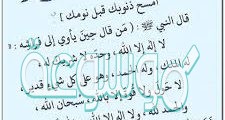 امسح ذنوبك قبل نومك ]
قال النبي ﷺ : ( من قال حين يأوي إلى فراشه :
لا إله إلا الله ، وحده لا شريك له
له الملك ، وله الحمد ، وهو على كل شيء قدير ،
لا حول ولا قوة إلا بالله ، سبحان الله ،
والحمد لله ، ولا إله إلا الله ، والله أكبر